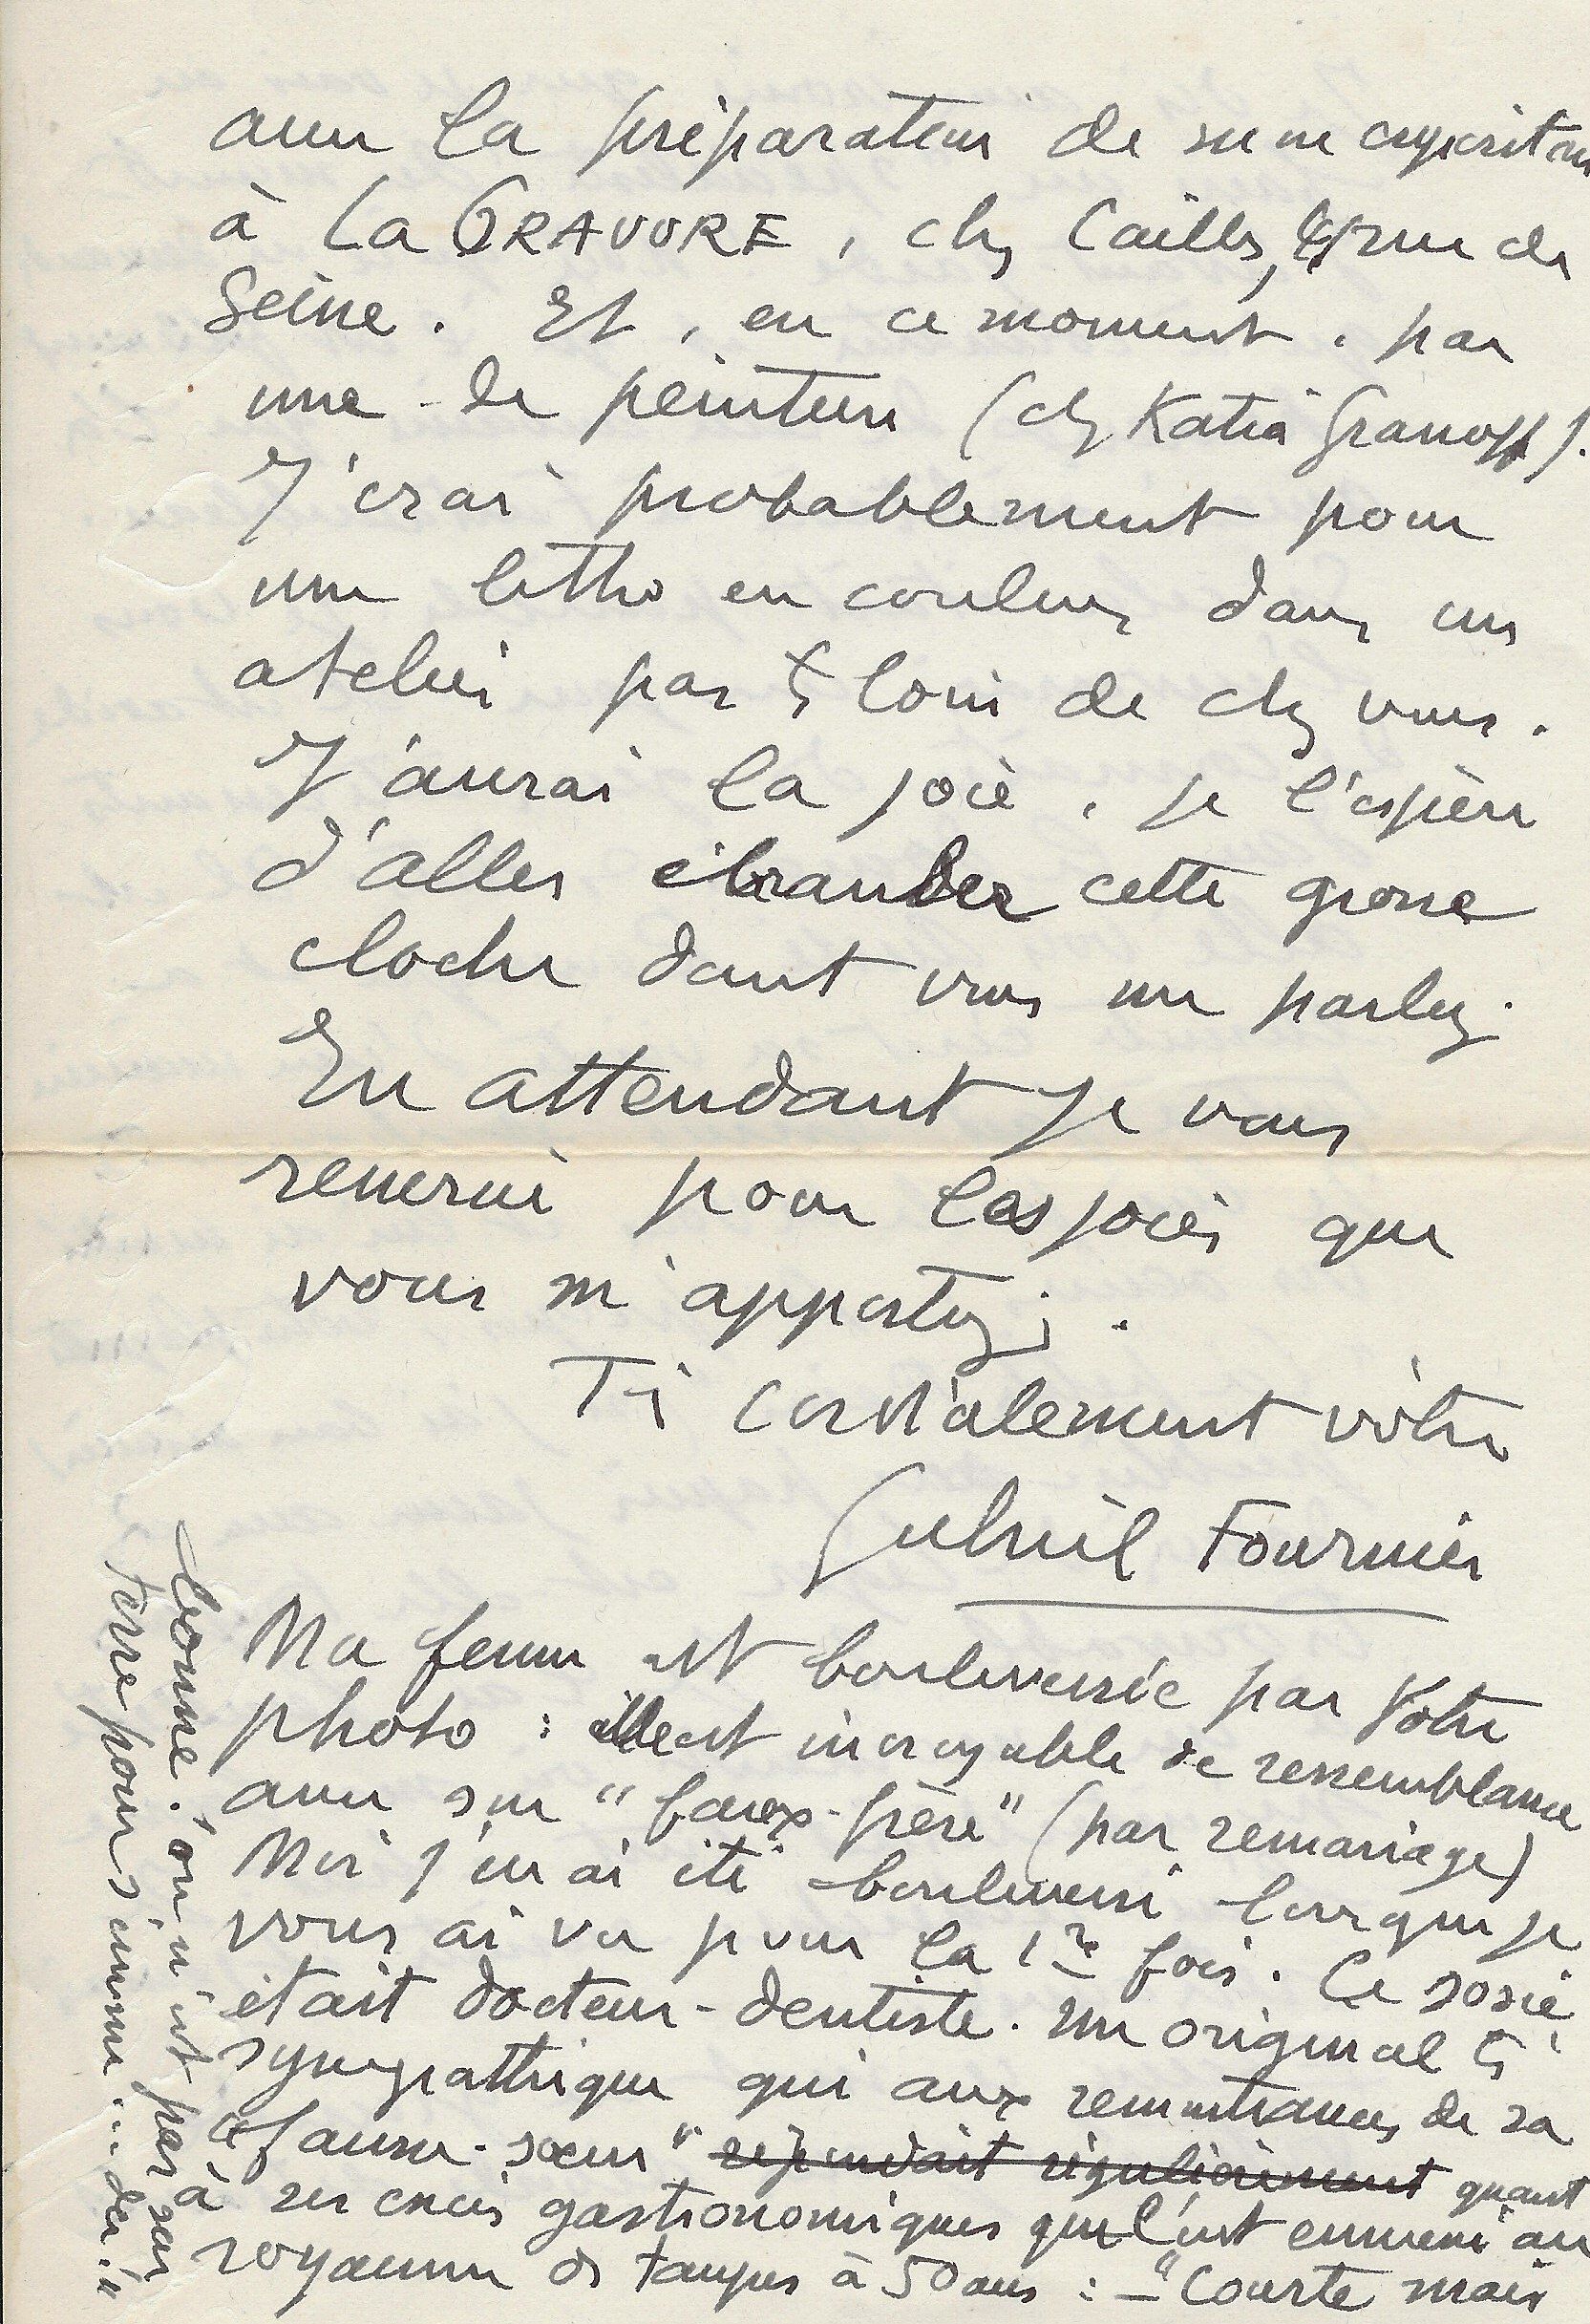 avec la préparation de mon exposition
à La GRAVURE, chez Cailler, rue de
Seine. Et, en ce moment, par
une de peinture (chez Katia Granoff).
J'irai probablement pour
une litho en couleurs dans un
atelier pas loin de chez vous.
J'aurai la joie, je l'espère
d'aller ébranler cette grosse
cloche dont vous me parlez.
En attendant je vous
remercie pour les joies que
vous m'apportez.
Tr cordialement vôtre
Gabriel Fournier
Ma femme est bouleversée par Votre
photo : elle est incroyable de ressemblance
avec son "faux-frère" (par remariage)
Moi j'en ai été bouleversé lorsque je
vous ai vu pour la 1re fois. Ce sosie
était docteur-dentiste. Un original
sympathique qui aux remontrances de sa
"fausse-sœur" répondait régulièrement quant
à ses excès gastronomiques qui l'ont emmené au
royaume des taupes à 50 ans : — "Courte mais
bonne. on n'est pas sur
Terre pour s'emmer...der."